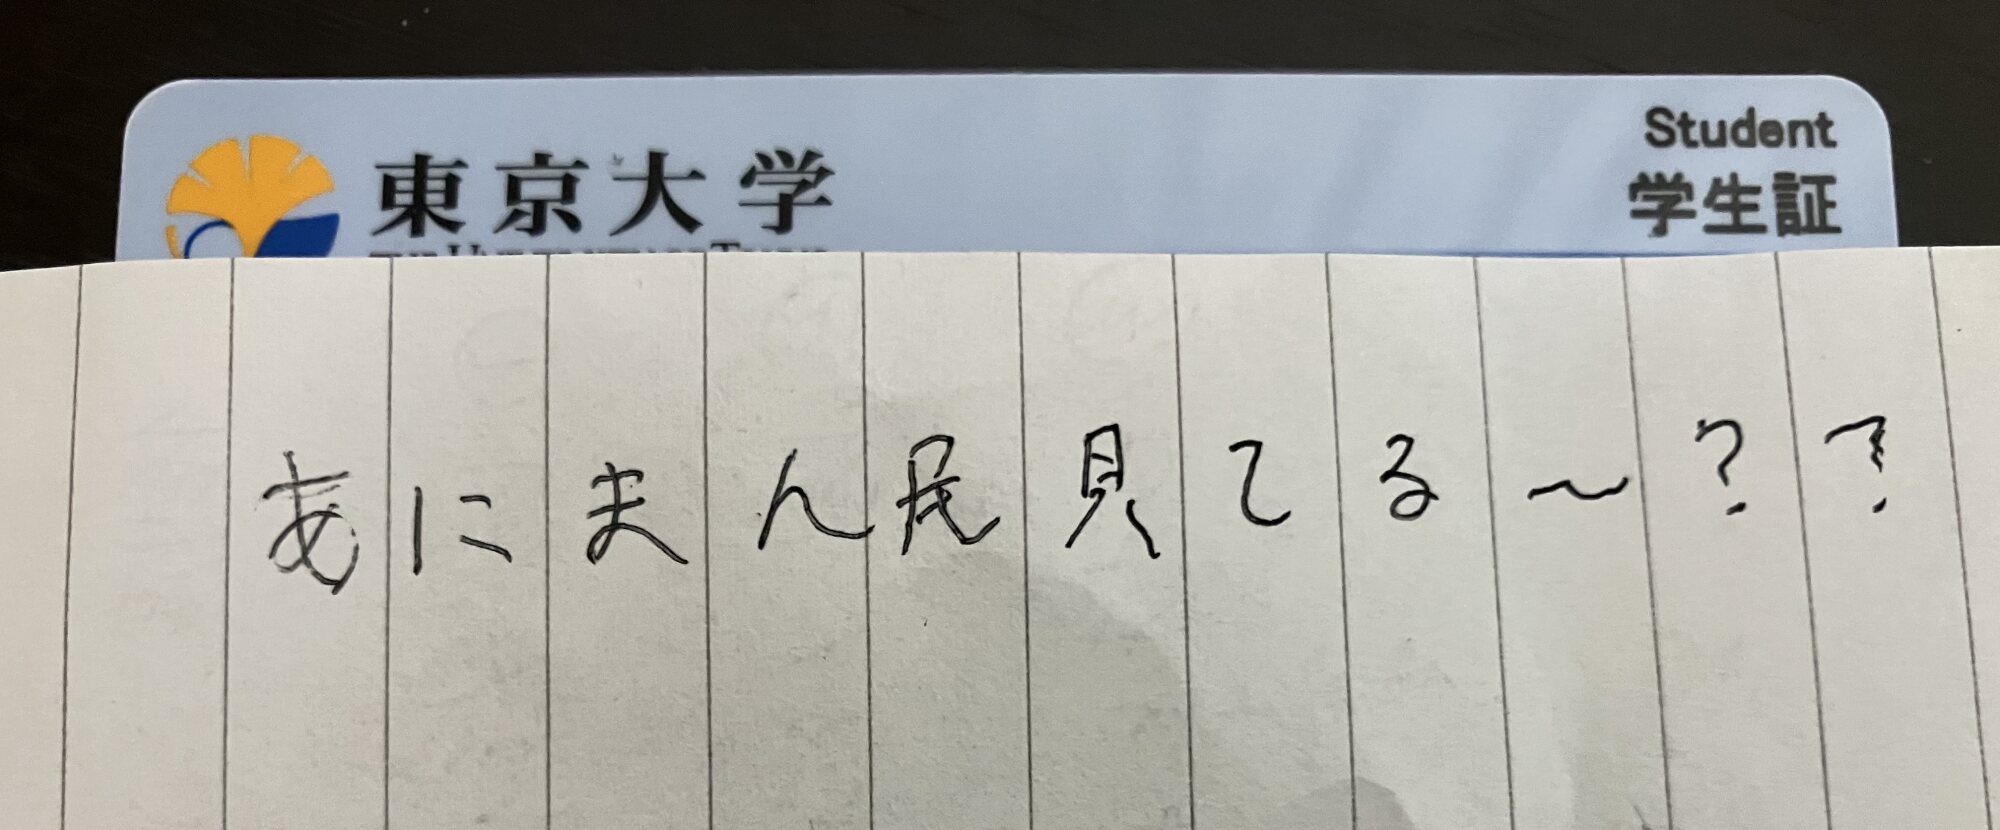 東京大学
THE UNIVERSITY OF TOKYO
Student
学生証
あにまん民見てる～??